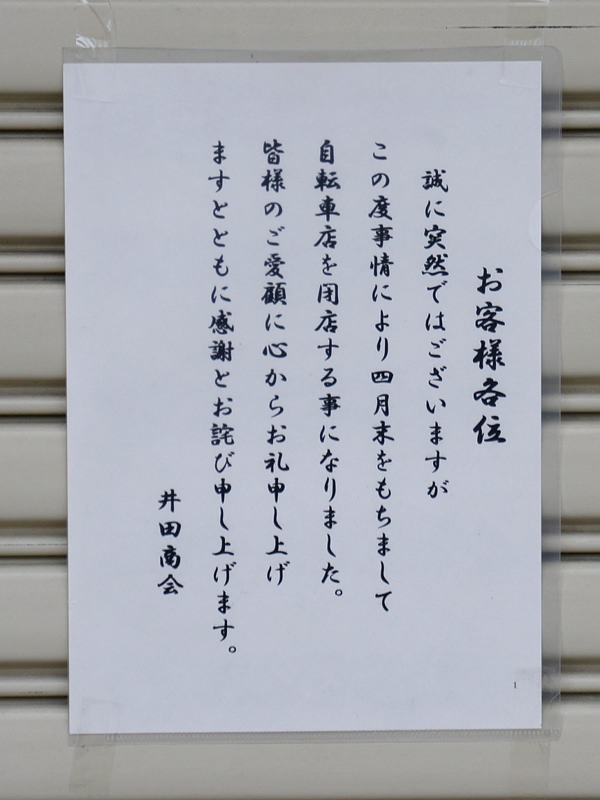 お客様各位
誠に突然ではございますが
この度事情により四月末をもちまして
自転車店を閉店する事になりました。
皆様のご愛顧に心からお礼申し上げ
ますとともに感謝とお詫び申し上げます。
井田商会
1